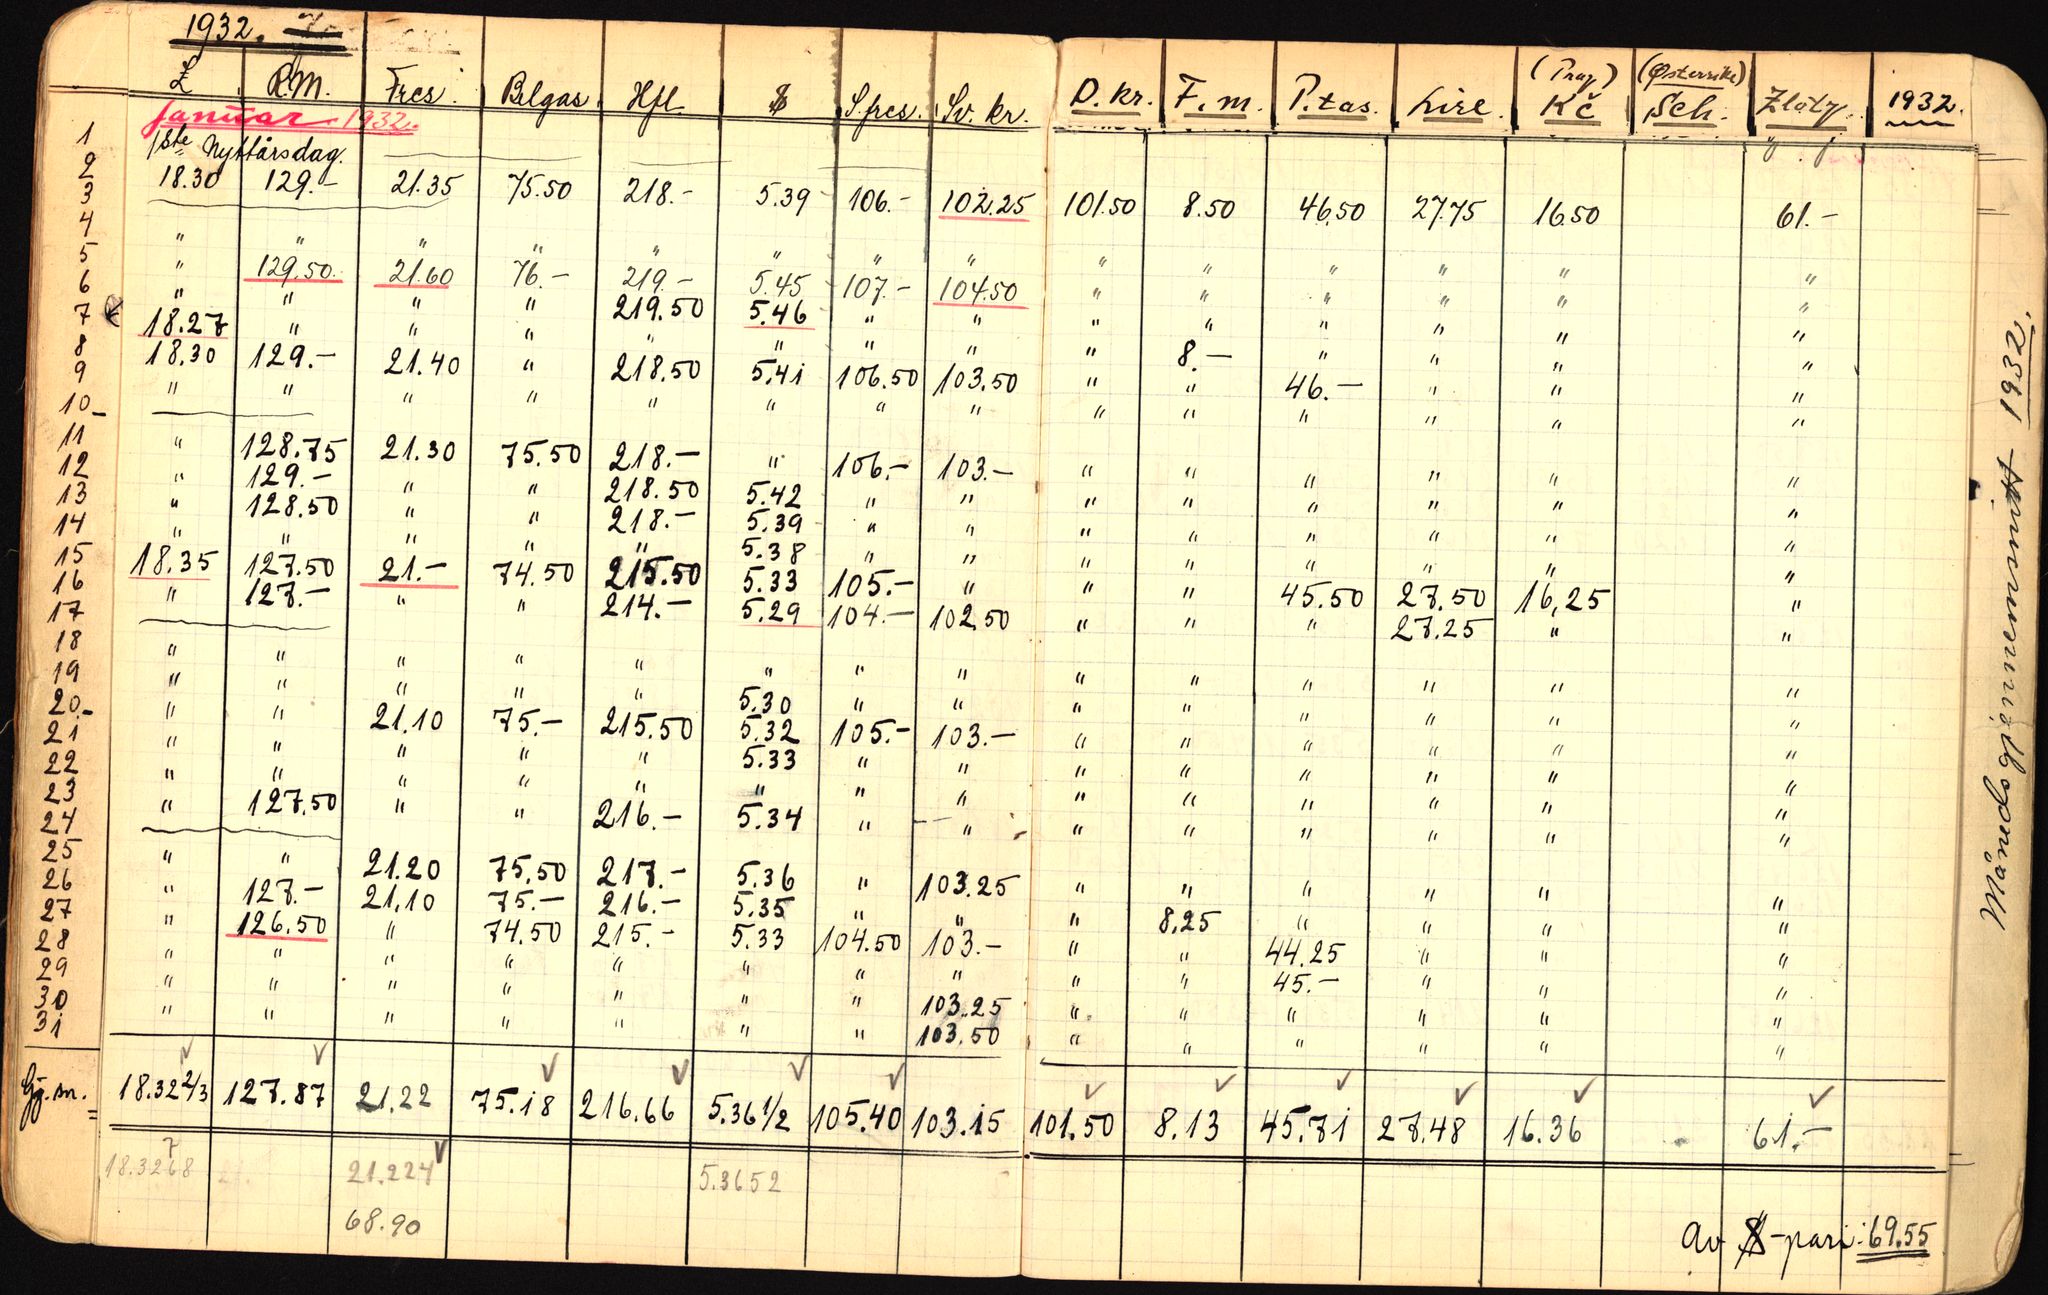 1932.
£ R.M. Frcs. Belgas. Hfl. $ S.frcs. Sv. kr. D. kr. F. m. P.tas. Lire. (Prag) Kč (Østerrike) Sch. Zloty. 1932.
Januar 1932.
1 1ste Nyttårsdag.
2 18.30 129.- 21.35 75.50 218.- 5.39 106.- 102.25 101.50 8.50 46.50 27.75 16.50 61.-
3
4 " " " " " " " " " " " " " "
5 " 129.50 21.60 76.- 219.- 5.45 107.- 104.50 " " " " " "
6 " " " " 219.50 5.46 " " " " " " " "
7 18.27 " " " " " " " " 8.- " " " "
8 18.30 129.- 21.40 " 218.50 5.41 106.50 103.50 " " 46.- " " "
9 " " " " " " " " " " " " " "
10
11 " 128.75 21.30 75.50 218.- " 106.- 103.- " " " " " "
12 " 129.- " " 218.50 5.42 " " " " " " " "
13 " 128.50 " " 218.- 5.39 " " " " " " " "
14 " " " " " 5.38 " " " " " " " "
15 18.35 127.50 21.- 74.50 215.50 5.33 105.- " " " 45.50 27.50 16,25 "
16 " 127.- " " 214.- 5.29 104.- 102.50 " " " 27.25 " "
17
18 " " " " " " " " " " " " " "
19 " " " " " 5.30 " " " " " " " "
20 " " 21.10 75.- 215.50 5.32 105.- 103.- " " " " " "
21 " " " " " 5.33 " " " " " " " "
22 " " " " " " " " " " " " " "
23 " 127.50 " " 216.- 5.34 " " " " " " " "
24
25 " " 21.20 75.50 217.- 5.36 " 103.25 " " " " " "
26 " 127.- 21.10 75.- 216.- 5.35 " " " 8,25 " " " "
27 " 126.50 " 74.50 215.- 5.33 104.50 103.- " " 44.25 " " "
28 " " " " " " " " " " 45.- " " "
29 " " " " " " " 103.25 " " " " " "
30 " " " " " " " 103.50 " " " " " "
31
Gj.sn. 18.32 2/3 127.87 21.22 75.18 216.66 5.36 1/2 105.40 103.15 101.50 8.13 45.71 27.48 16.36 61.-
7
18.3268 21.224 5.3652
68.90
av $-pari: 69.55
Månedsgjennemsnitt 1932.